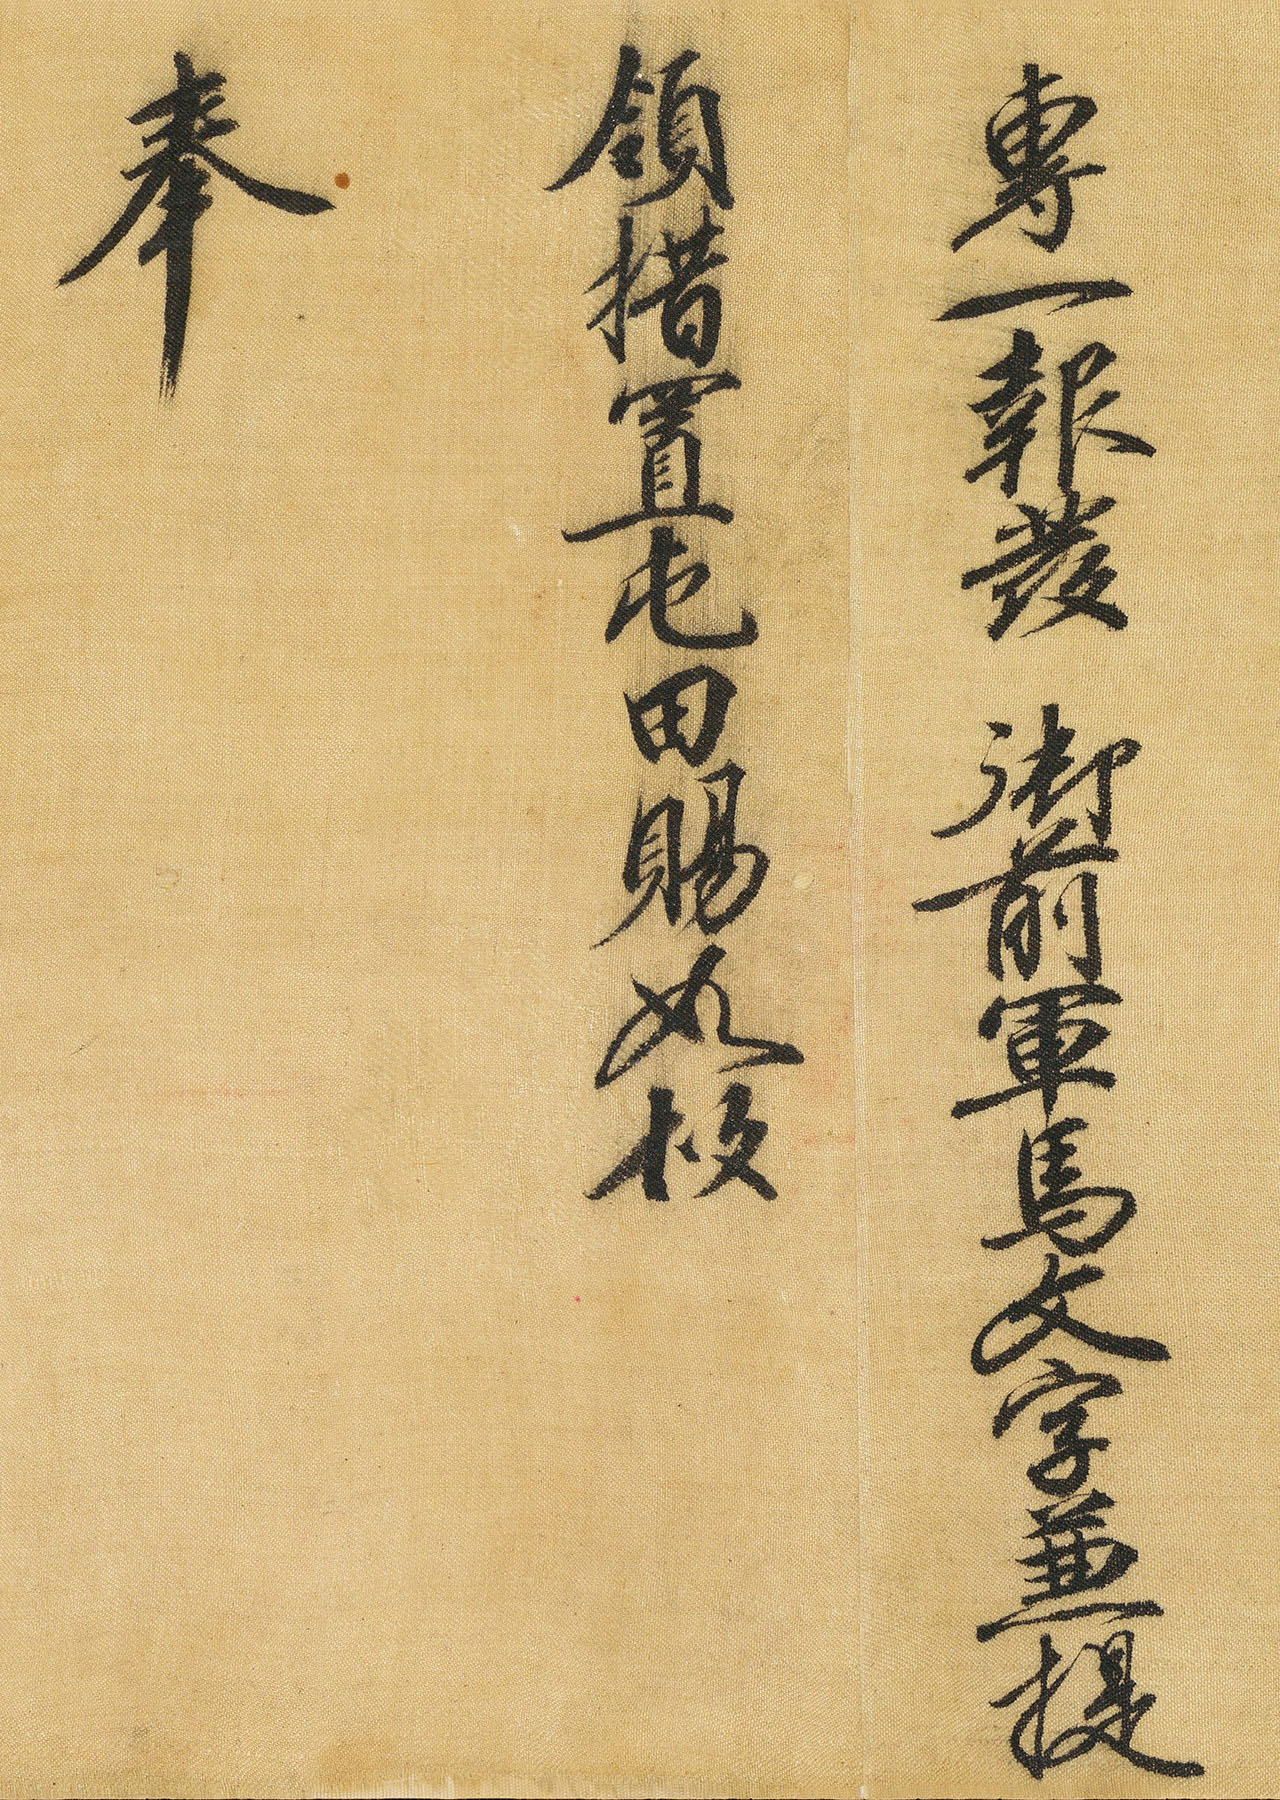 專一報發 御前軍馬文字兼提
領措置屯田賜如校
奉